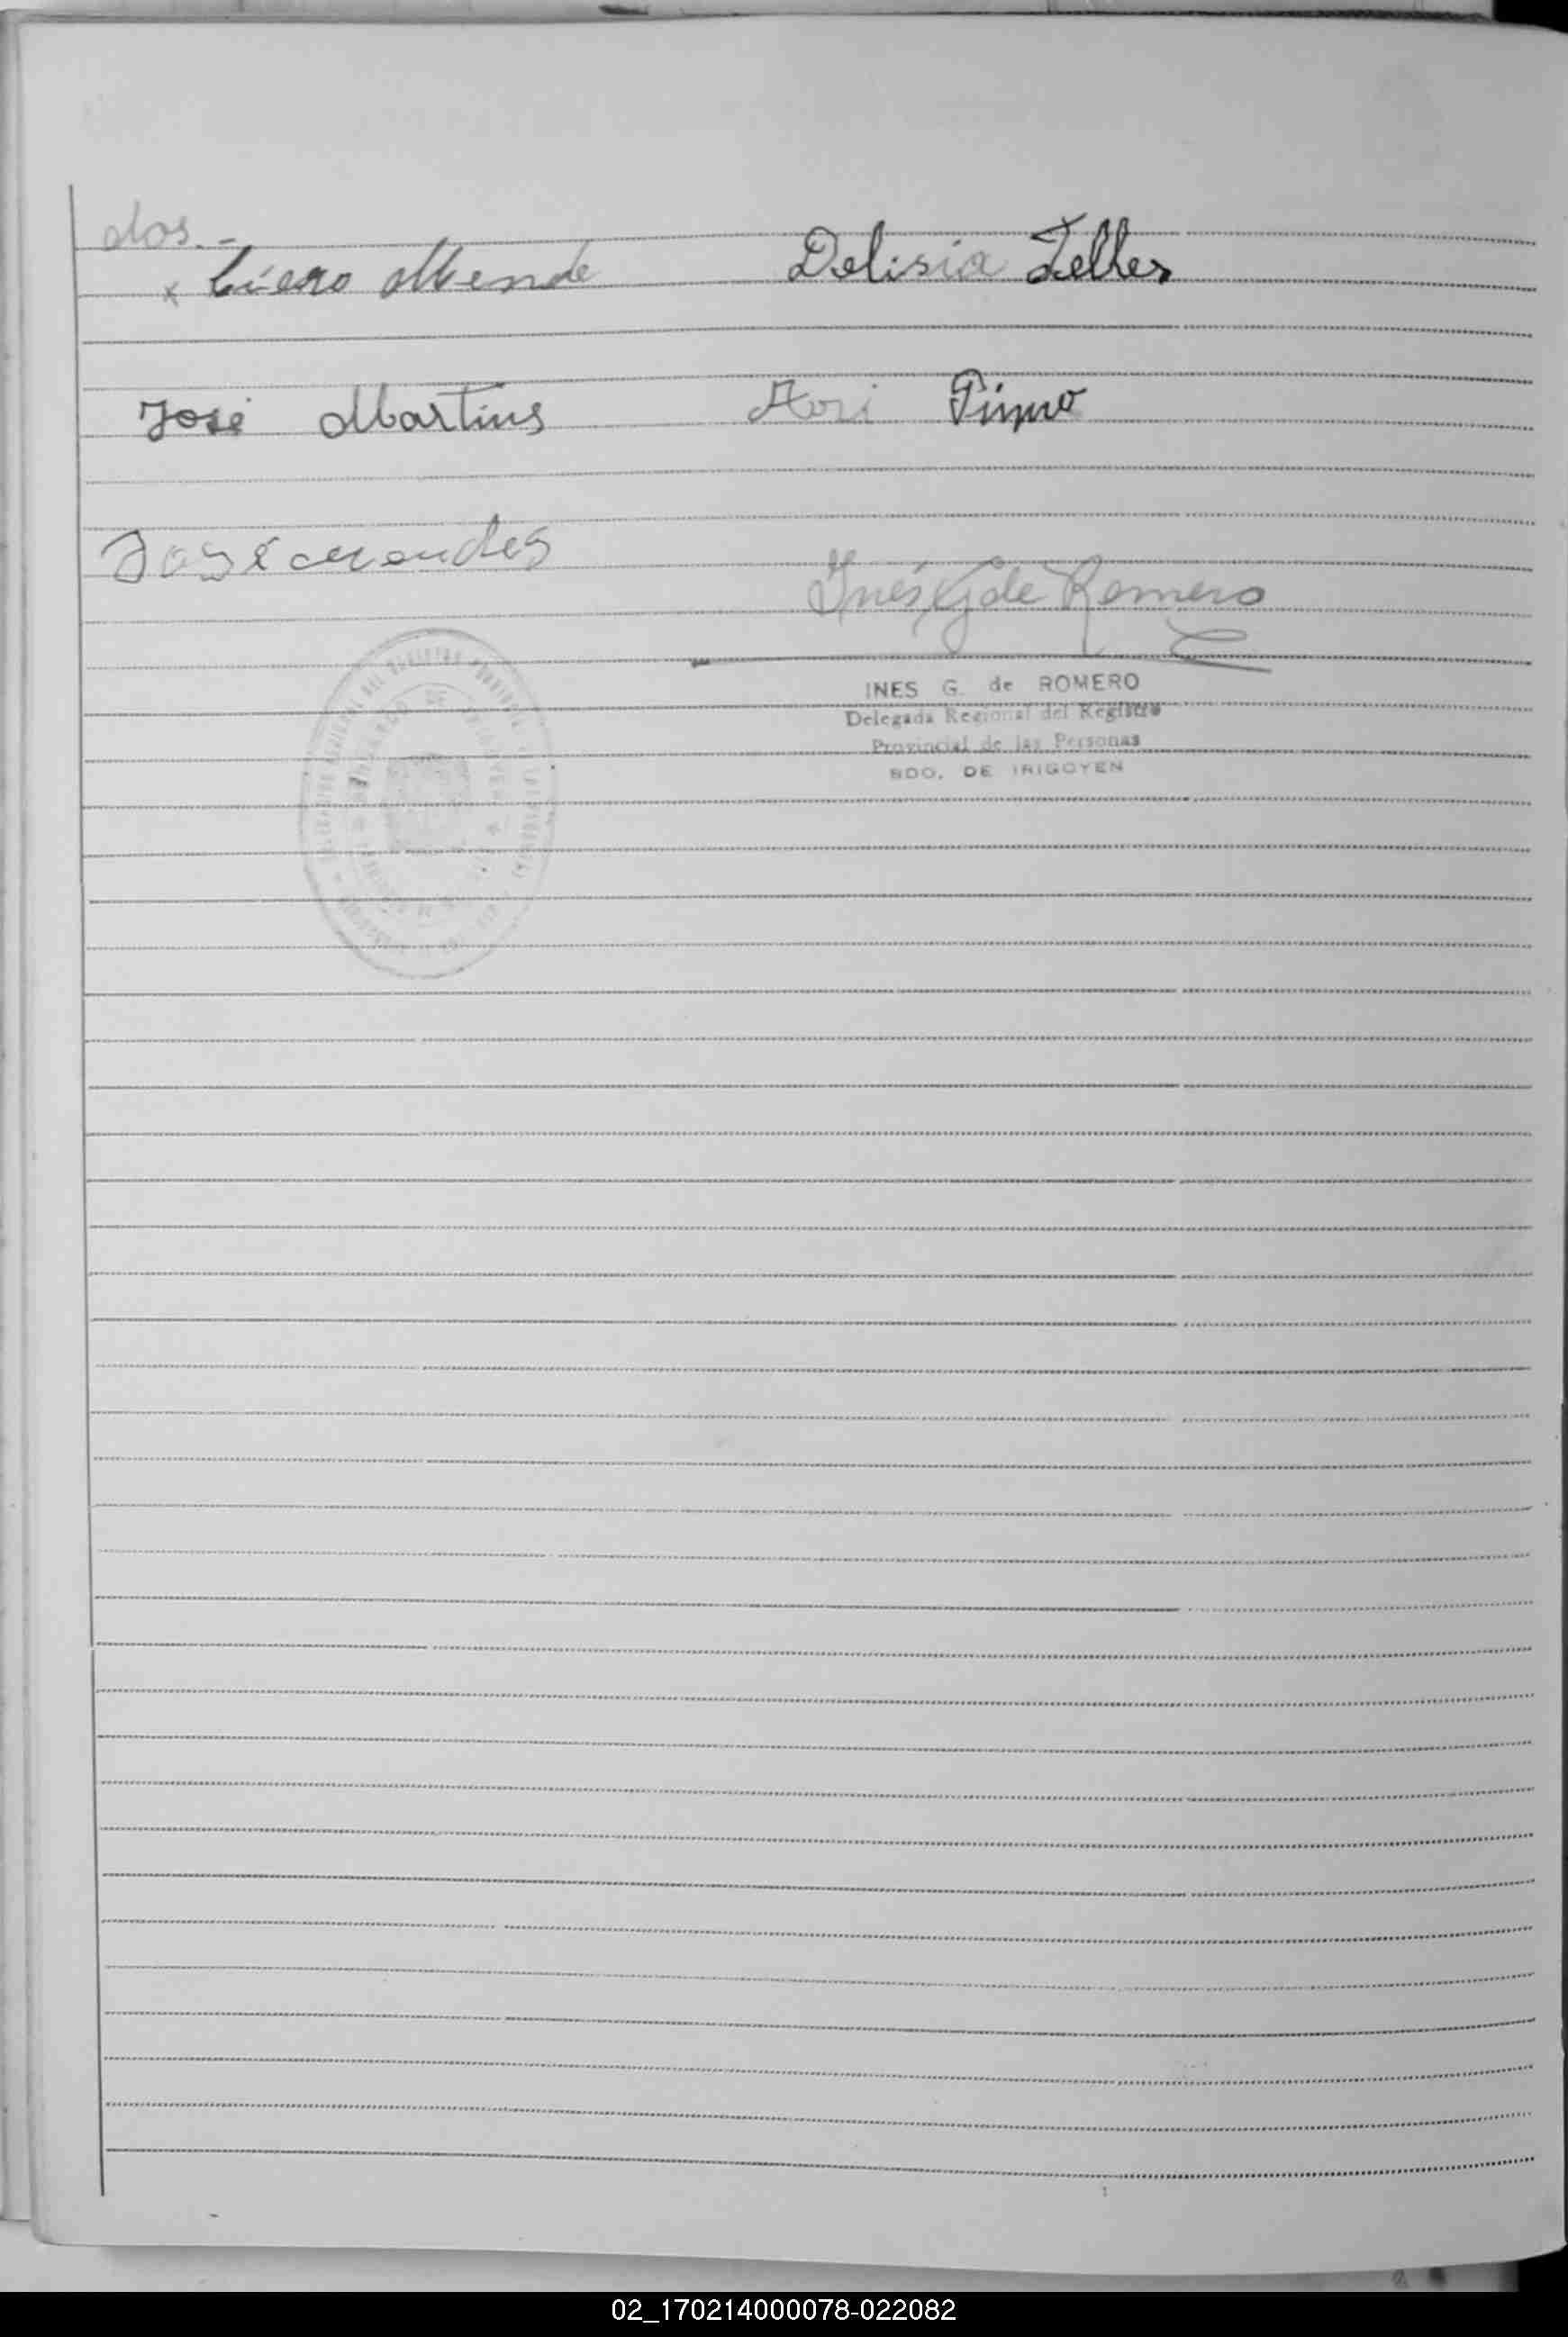 dos.-
x Cicero Mende Delisia Telles
José Martins Aori
José mendes Inés G de Romero
INES G. de ROMERO
Delegada Regional del Registro
Provincial de las Personas
BDO. DE IRIGOYEN
02_170214000078-022082